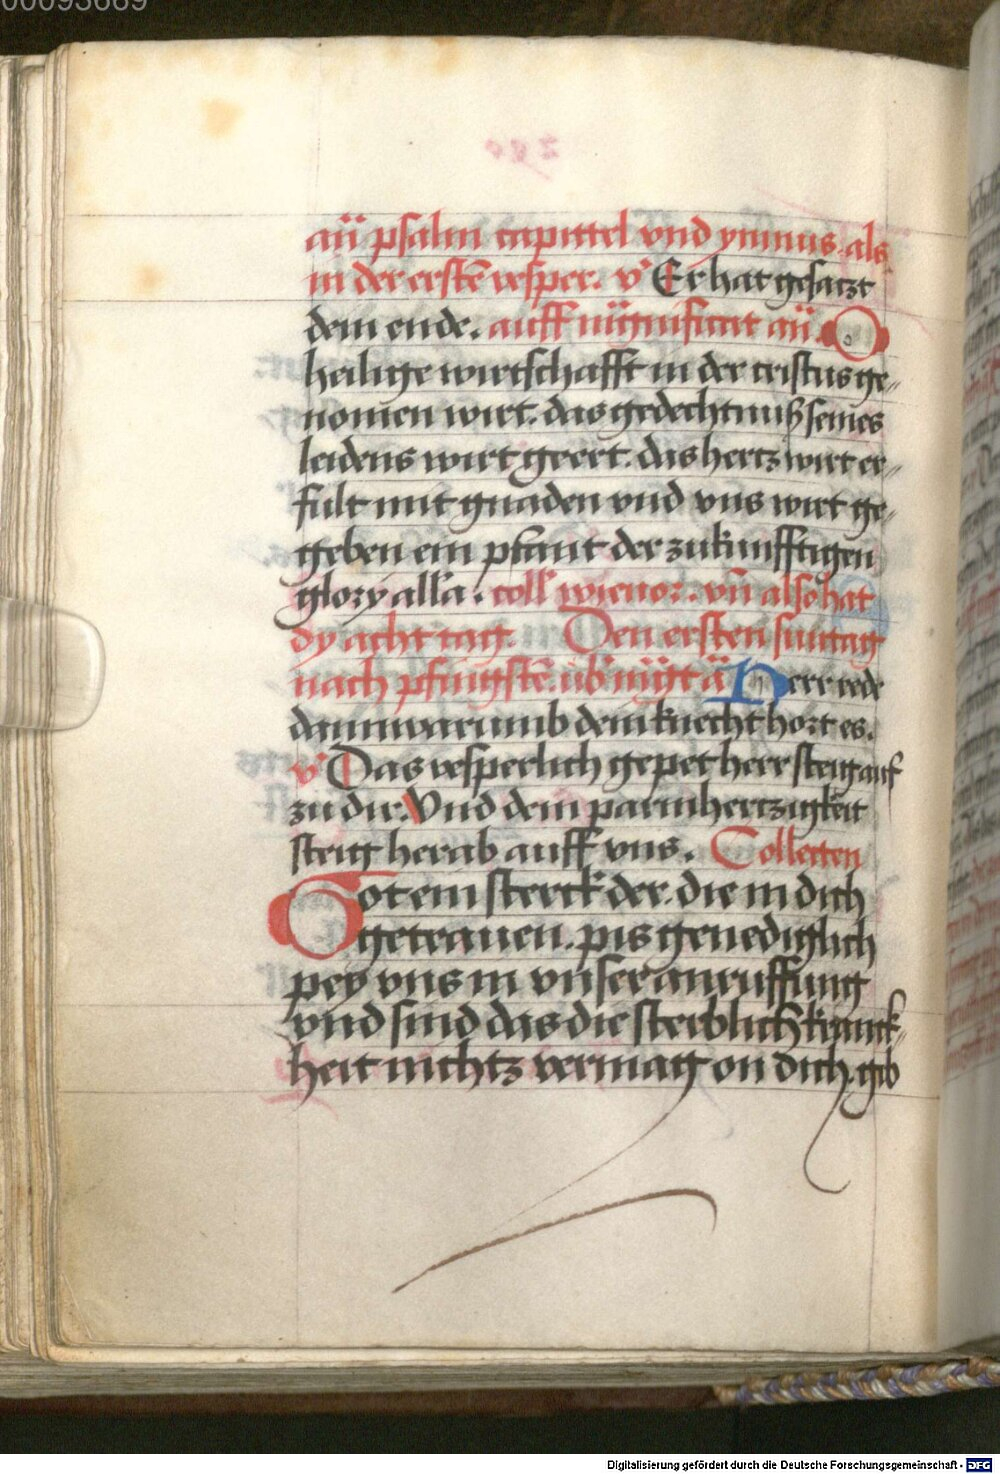 00093669
añ psalm capittel vnd ymnus. als
in der erstē vesper. v Er hat gesaczt
dem ende. auff mḡnificat añ. O
heilige wirtschafft in der cristus ge-
nomen wirt. das gedechtnuß seines
leidens wirt geert. das hertz wirt er-
fult mit gnaden vnd vns wirt ge-
geben ein pfant der zukunfftigen
glory alla. coll wieuor. vñ also hat
dy acht tag. Den ersten suntag
nach pfingstē. Herr rede
dann warumb dein knecht hort es.
v Das vesperlich gepet herr steig auf
zu dir. Vnd dein parmhertzigkeit
steig herab auff vns. Collecten
Got ein sterck der. die in dich
getrauen. pis genediglich
pey vns in vnser anruffung
vnd sind das die sterblich kranck-
heit nichtz vermag on dich. gib
Digitalisierung gefördert durch die Deutsche Forschungsgemeinschaft - DFG